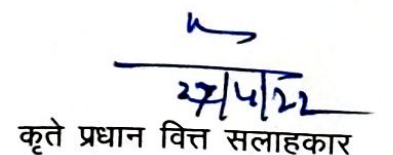 27/4/22
कृते प्रधान वित्त सलाहकार